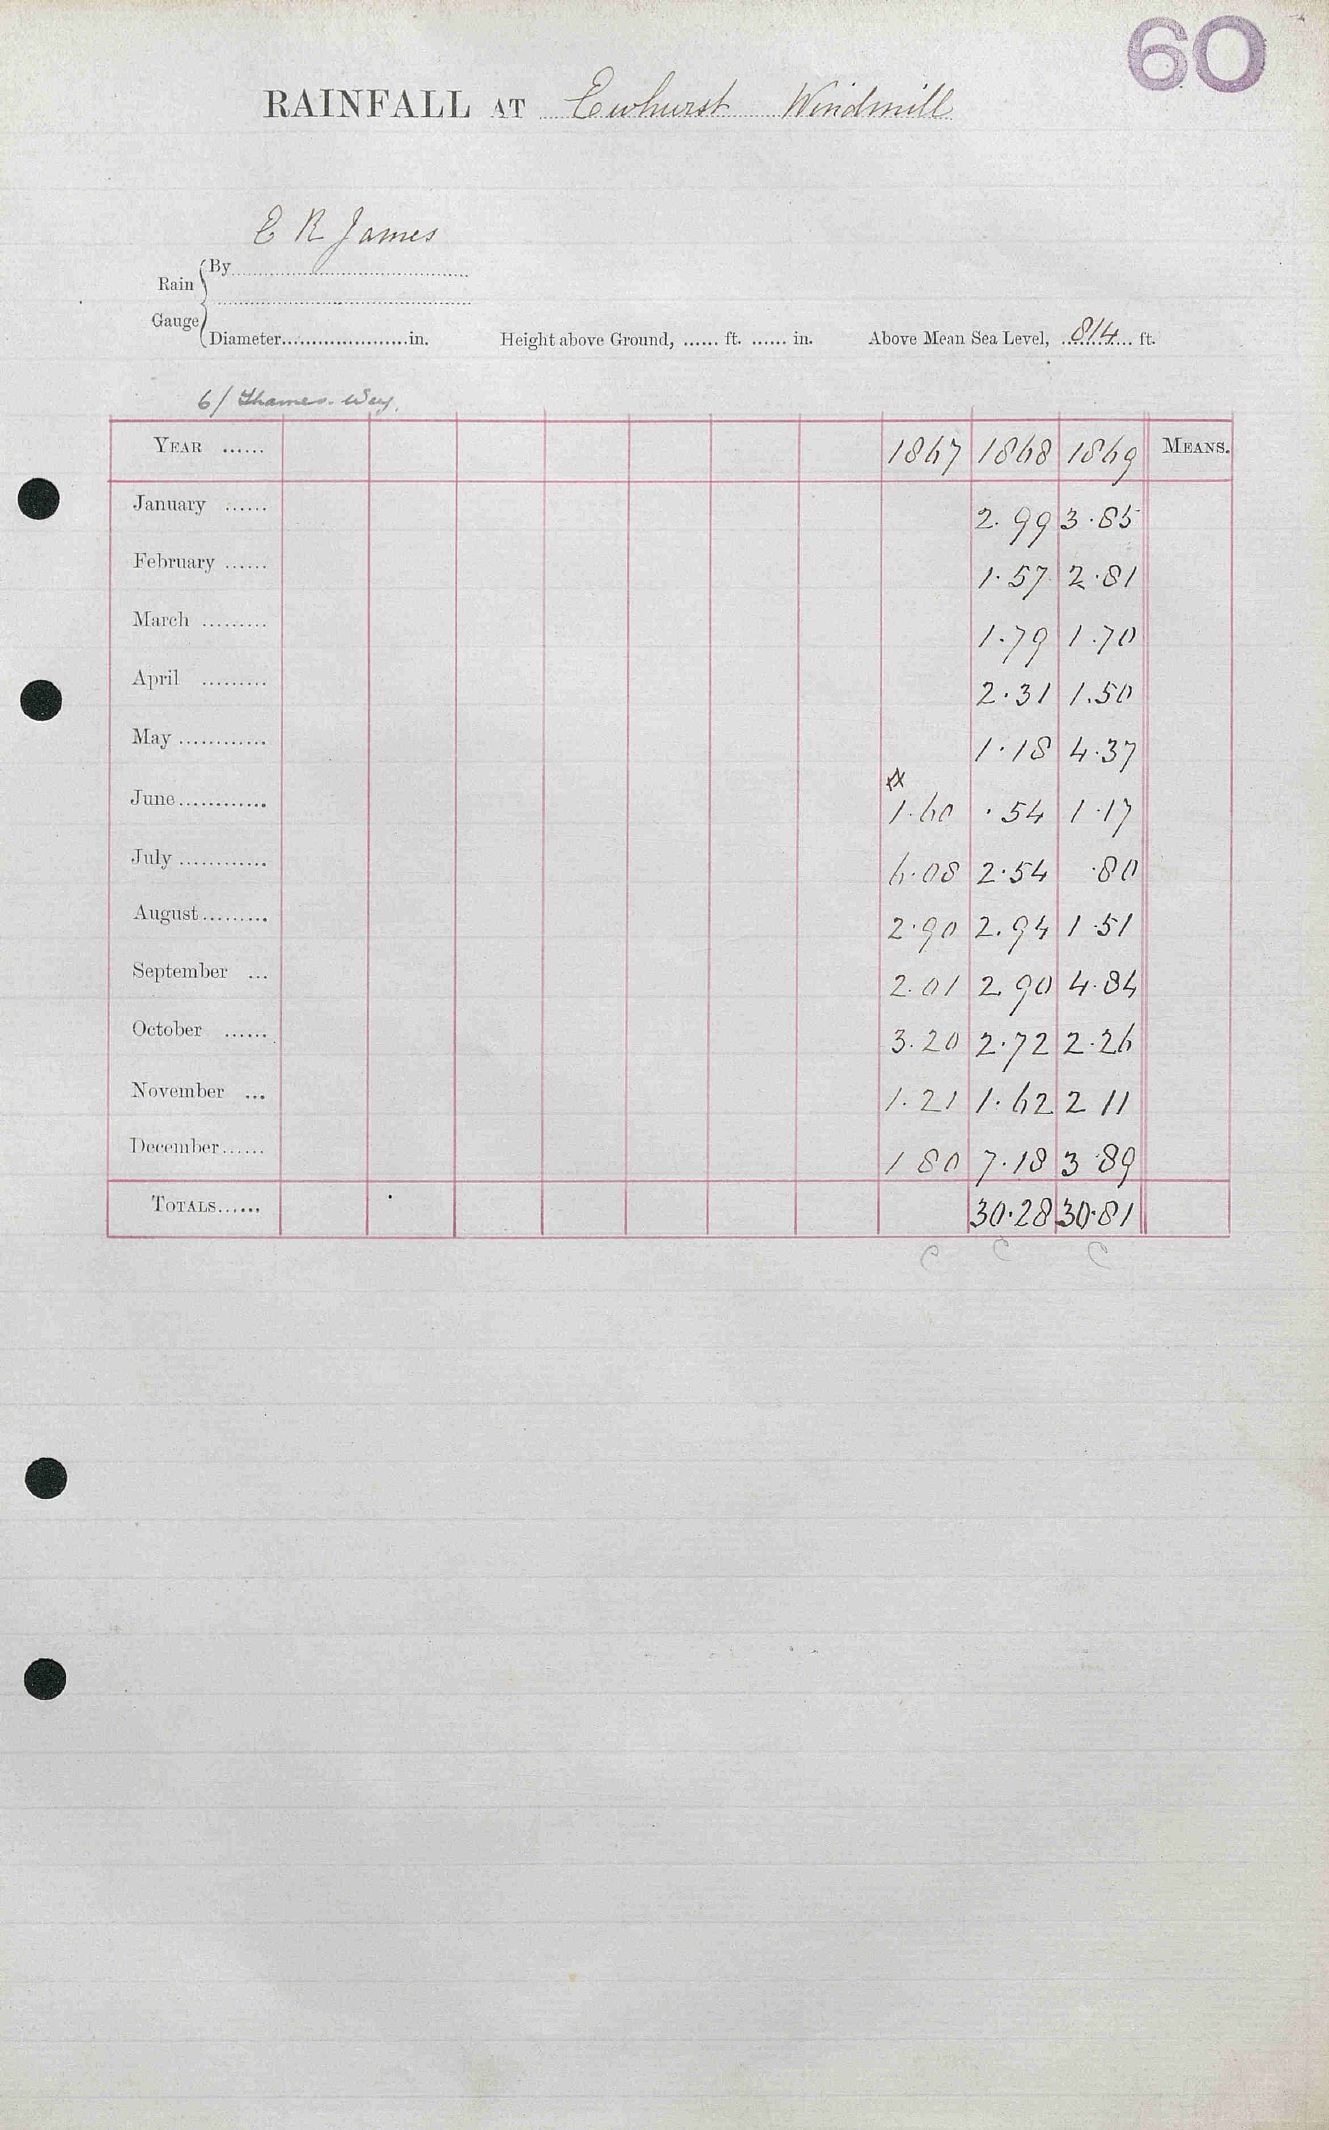 60
RAINFALL AT Ewhurst Windmill
E R James
Rain Gauge { By
Diameter in. Height above Ground, ...... ft. ...... in. Above Mean Sea Level, 814 ft.
6/ Thames. Wey.
YEAR ...... 1867 1868 1869 MEANS.
January ...... 2.99 3.85
February ...... 1.57 2.81
March ......... 1.79 1.70
April ......... 2.31 1.50
May ............ 1.18 4.37
June ............ 1.60 .54 1.17
July ............ 6.08 2.54 .80
August ......... 2.90 2.94 1.51
September ... 2.01 2.90 4.84
October ...... 3.20 2.72 2.26
November ... 1.21 1.62 2 11
December ...... 1 80 7.18 3 89
TOTALS ...... 30.28 30.81
C C C